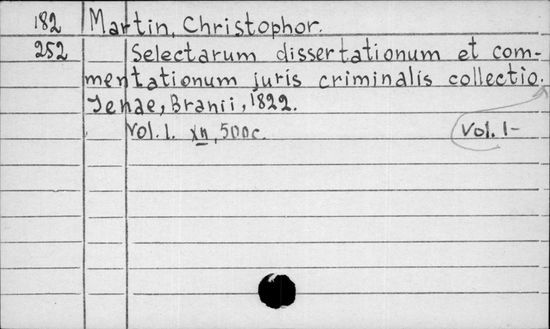 182 Martin, Christophor.
252 Selectarum dissertationum et com-
mentationum juris criminalis collectio.
Jenae, Branii, 1822.
Vol. 1. XII, 500c. Vol. 1-